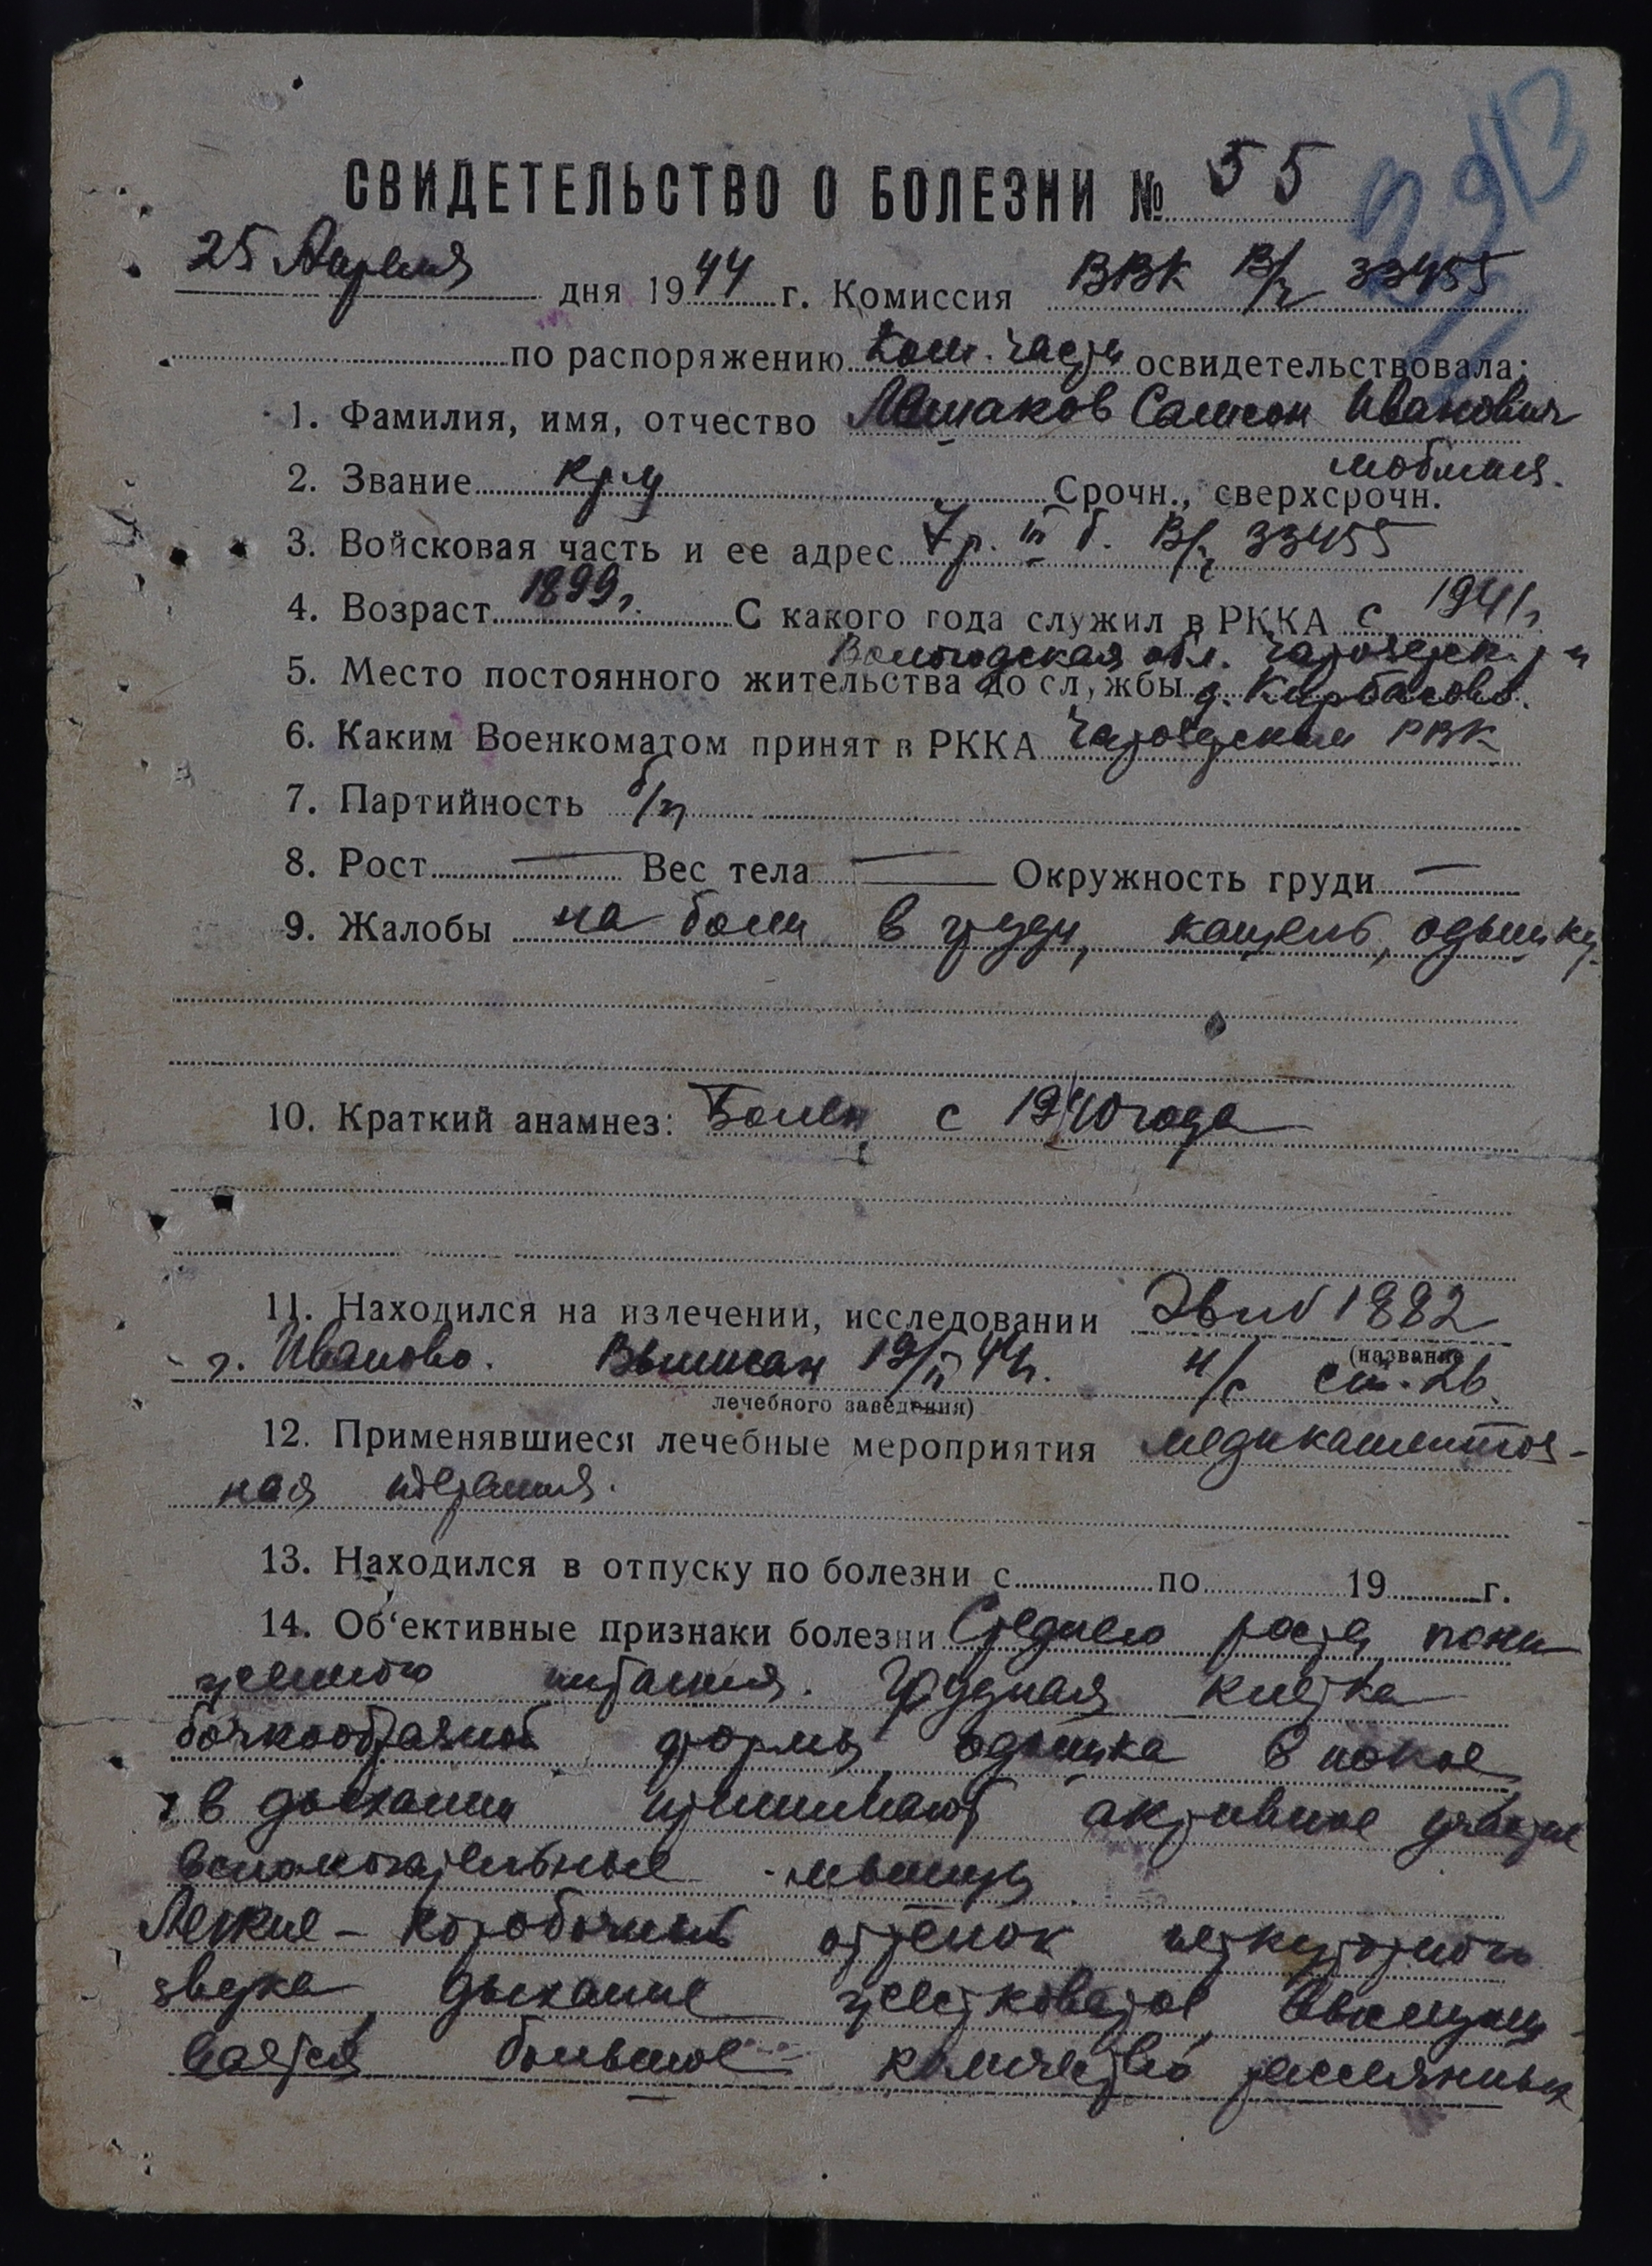 СВИДЕТЕЛЬСТВО О БОЛЕЗНИ № 55
25 Апреля дня 1944 г. Комиссия ВВК В/ч 33455
по распоряжению Ком. части освидетельствовала:
1. Фамилия, имя, отчество Самсон Иванович
мобилиз.
2. Звание кр-ц Срочн., сверхсрочн.
3. Войсковая часть и ее адрес 7 р. III б. В/ч 33455
4. Возраст 1899 г. С какого года служил в РККА с 1941 г.
Вологодская обл. Чарозерск. р-н
5. Место постоянного жительства до службы д. Кирбасово.
6. Каким Военкоматом принят в РККА Чарозерским РВК
7. Партийность б/п
8. Рост — Вес тела — Окружность груди —
9. Жалобы на боли в груди, кашель, одышку
10. Краткий анамнез: Болен с 1940 года
11. Находился на излечении, исследовании 1882
(название
г. Иваново. Выписан 19/II 44 г. н/с ст. 2б.
лечебного заведения)
12. Применявшиеся лечебные мероприятия медикаментоз-
ная терапия.
13. Находился в отпуску по болезни с по 19 г.
14. Об'ективные признаки болезни Среднего роста пони
женного питания. Грудная клетка
бочкообразной формы, одышка в покое
в дыхании принимают активное участие
вспомогательные мышцы
Легкие – коробочный оттенок перкуторного
звука, дыхание жестковатое, выслуши-
вается большое количество рассеянных